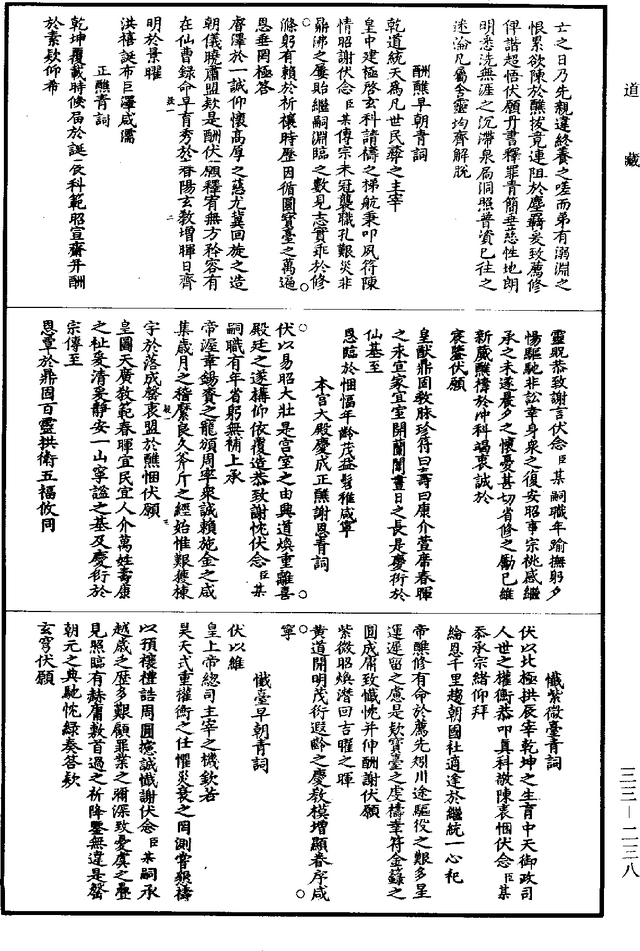 道藏
亡之日乃先親違終養之嗟而弟有溺淵之
恨累欲陳於醮拔竟連阻於塵羇爰致薦修
俾諧超悟伏願丹書釋罪青簡垂慈性地朗
明悉洗無涯之沉滯泉扃洞照普資已往之
迷淪凡屬含靈均齊解脫
酬醮早朝青詞
乾道統天爲凡世民彝之主宰
皇中建極啓玄科請禱之梯航秉叩夙符陳
情昭謝伏念臣某傳宗未冠襲職孔艱災非
鼎沸之屢貽繼嗣淵臨之數見志實乖於修
滌躬有賴於祈禳時歷因循圓寶臺之萬遍
恩垂罔極答
睿澤於一誠仰懷高厚之慈尤冀回旋之造
朝儀曉肅盟欵是酬伏願釋宥無方矜容有
在仙曹錄命早育秀於香陽玄教增暉日齊
明於景曜
洪禧誕布巨澤咸濡
正醮青詞
乾坤覆載時候屆於誕辰科範昭宣齋丹酬
於素欵仰希
靈貺恭致謝言伏念臣某嗣職年踰撫躬夕
惕驅馳非訟幸身衆之復安昭事宗桃感繼
承之未遂晨夕之懷憂甚切省修之勵已維
新蕆醮禱於冲科竭衷誠於
寅鑒伏願
皇猷鼎固教脉珍符曰壽曰康介萱席春暉
之永宜家宜室開蘭閨晝日之長是慶衍於
仙基至
恩臨於悃愊年齡茂益髫稚咸寧
本宮大殿慶成正醮謝恩青詞
伏以易昭大壯是宮室之由興道煥重離喜
殿廷之遂構仰依覆造恭致謝忱伏念臣某
嗣職有年省躬無補上承
帝渥幸錫賚之寵頒周率衆誠賴施金之咸
集歲月之稽縻良久斧斤之經始惟艱樁棟
宇於落成罄衷盟於醮悃伏願
皇圖天廣教範春暉宜民宜人介萬姓壽康
之祉爰清爰靜安一山寧謐之基及慶衍於
宗傳至
恩覃於鼎固百靈拱衛五福攸同
懺紫微臺青詞
伏以北極拱辰宰乾坤之生育中天御政司
人世之權衡恭叩真科敬陳衷悃伏念臣某
忝承宗緒仰拜
綸恩千里趨朝國社適逢於繼統一心祀
帝醮修有命於薦先矧川途驅役之艱多星
運遲留之慮是欵寶臺之虔禱幸符金籙之
圓成庸致懺忱并仰酬謝伏願
紫微昭煥潛回吉曜之暉
黃道開明茂衍遐齡之慶教模增顯眷序咸
寧
懺臺早朝青詞
伏以維
皇上帝總司主宰之機欽若
昊天式重權衡之任懼災衰之罔測嘗癏禱
以預禳禮誥周圓攄誠懺謝伏念臣某嗣承
越歲之歷多艱顧罪業之彌深致憂虞之疊
見照臨有赫庸數首過之祈降鑒無違是罄
朝元之典馳忱綠奏答欵
玄穹伏願
三三—二三八